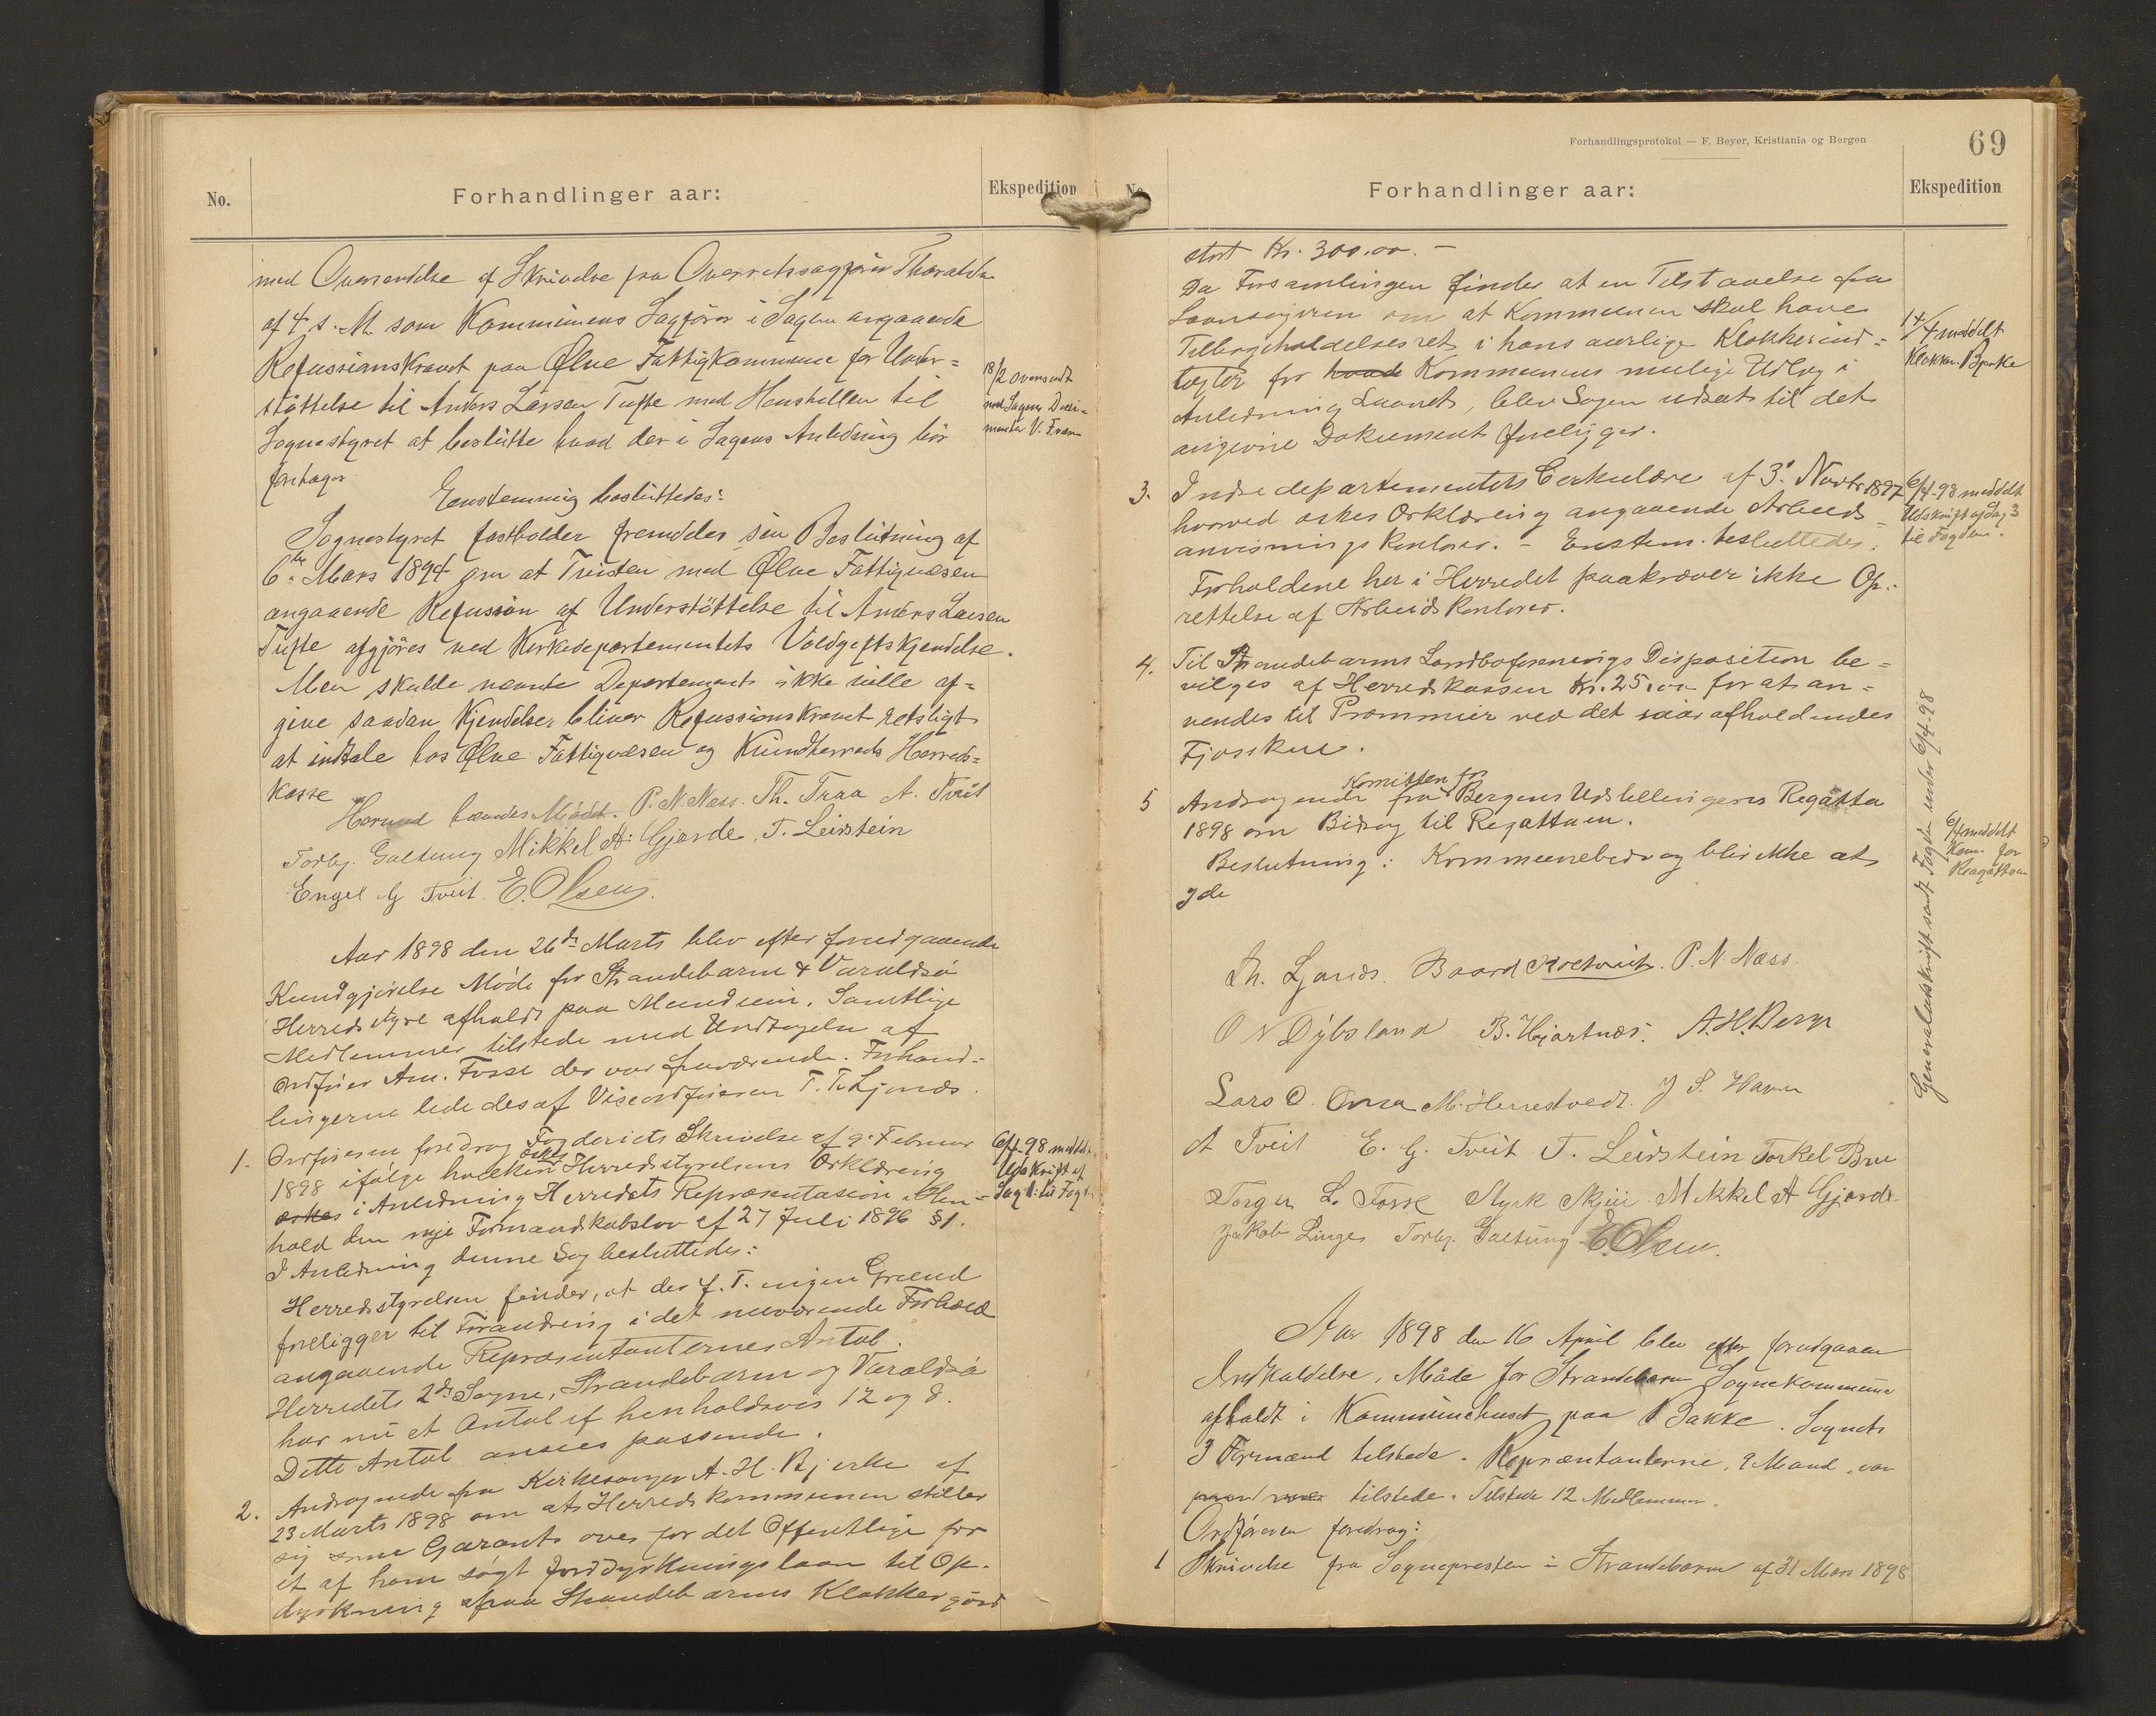 No.
Forhandlinger aar:
Ekspedition
med Oversendelse af Skrivelse fra Overretssagfører
af 4 s. M. som Kommunens Sagförer i Sagen angaaende
Refusionskravet paa Ølve Fattigkommune for Under=
stöttelse til Anders Larsen Tufte med Henstillen til
Sognestyret at beslutte hvad der i Sagens Anledning bör
foretages.
18/2 oversendt
med Sagens Doku=
menter
Enstemmig besluttedes:
Sognestyret fastholder fremdeles sin Beslutning af
6te Mars 1894 om at Tvisten med Ølve Fattigvæsen
angaaende Refusion af Understöttelse til Anders Larsen
Tufte afgjöres ved Kirkedepartementets Voldgiftskjendelse.
Men skulde nævnte Departement ikke ville af=
give saadan Kjendelse, bliver Refusionskravet retsligt
at indtale hos Ølve Fattigvæsen og Kvindherreds Herreds=
kasse
Hermed hævedes Mödet. P. N. Næss. Th. Traa A. Tveit
Torbj. Galtung Mikkel A. Gjerde, T. Leirstein
Engel G Tveit. E. Olsen.
Aar 1898 den 26de Marts blev efter forudgaaende
Kundgjørelse Møde for Strandebarm & Varaldsø
Herredsstyre afholdt paa Mundheim. Samtlige
Medlemmer tilstede med Undtagelse af
Ordfører Am. Fosse der var fraværende. Forhand=
lingerne lededes af Viseordføreren T. T. Ljones.
1. Ordføreren foredrog Fogderiets Skrivelse af 9. Februar
1898 ifølge hvilken æskes Herredsstyrelsens Erklæring
æskes i Anledning Herredets Repræsentasion i Hen=
hold den nye Formandskabslov af 27 Juli 1896 §1.
I Anledning denne Sag besluttedes:
6/4-98 meddelt
Udskrift af
Sag 1. til Fogd.
Herredsstyrelsen finder, at der f. T. ingen Grund
foreligger til Forandring i det nuværende Forhold
angaaende Repræsentanternes Antal.
Herredets 2de Sogne, Strandebarm og Varaldsø
har nu et Antal af henholdsvis 12 og 8.
Dette Antal ansees passende.
2. Andragende fra Kirkesanger A. H. Bjerke af
23 Marts 1898 om at Herredskommunen stiller
sig som Garant over for det Offentlige for
et af ham søgt Jorddyrkningslaan til Op=
dyrkning af paa Strandebarms Klokkergård
Forhandlingsprotokol — F. Beyer, Kristiania og Bergen
69
No.
Forhandlinger aar:
Ekspedition
stort Kr. 300.00. —
Da Forsamlingen finder at en Tilstaaelse fra
Laansøgeren om at Kommunen skal have
Tilbageholdelsesret i hans aarlige Klokkerind=
tægter for hvad Kommunens mulige Udlæg i
Anledning Laanet, blev Sagen udsat til det
angivne Dokument foreligger.
14/4 meddelt
Klokker Bjerke
3. Indredepartementets Cirkulære af 3' Novbr 1897
hvorved æskes Erklæring angaaende Arbeids=
anvisningskontorer. — Enstem. besluttedes:
Forholdene her i Herredet paakræver ikke Op=
rettelse af Arbeidskontorer.
6/4-98 meddelt
Udskrift af Sag 3
til Fogden.
4. Til Strandebarms Landboforenings Disposition be=
vilges af Herredskassen Kr. 25.00 for at an=
vendes til Præmmier ved det iaar afholdendes
Fjøsskue.
5 Andragende fra Komitten for Bergens Udstillingens Regatta
1898 om Bidrag til Regattaen.
Beslutning: Kommunebidrag blir ikke at
yde
6/4 meddelt
Kom. for
Reagattaen
Generaludskrift sendt Fogden under 6/4-98
Th. Ljones. Baard P. N Næss.
O N Dybsland B. Hjartnæs. A. H. Berge
Lars O. Omsa M. Herrestvedt. J S. Haver
A Tveit E. G. Tveit T. Leirstein Torkel Bru
Torger L. Fosse Styrk Skjei Mikkel A Gjerde
Jakob Linges Torbj. Galtung E. Olsen.
Aar 1898 den 16 April blev efter forudgaaen
Indkaldelse, Möde for Strandebarm Sognekommune
afholdt i Kommunehuset paa Bakke. Sognets
3 Formænd tilstede. Repræntanterne, 9 Mand, var
tilstede. Tilstede 12 Medlemmer.
Ordföreren foredrog:
1 Skrivelse fra Sognepresten i Strandebarm af 31 Mars 1898